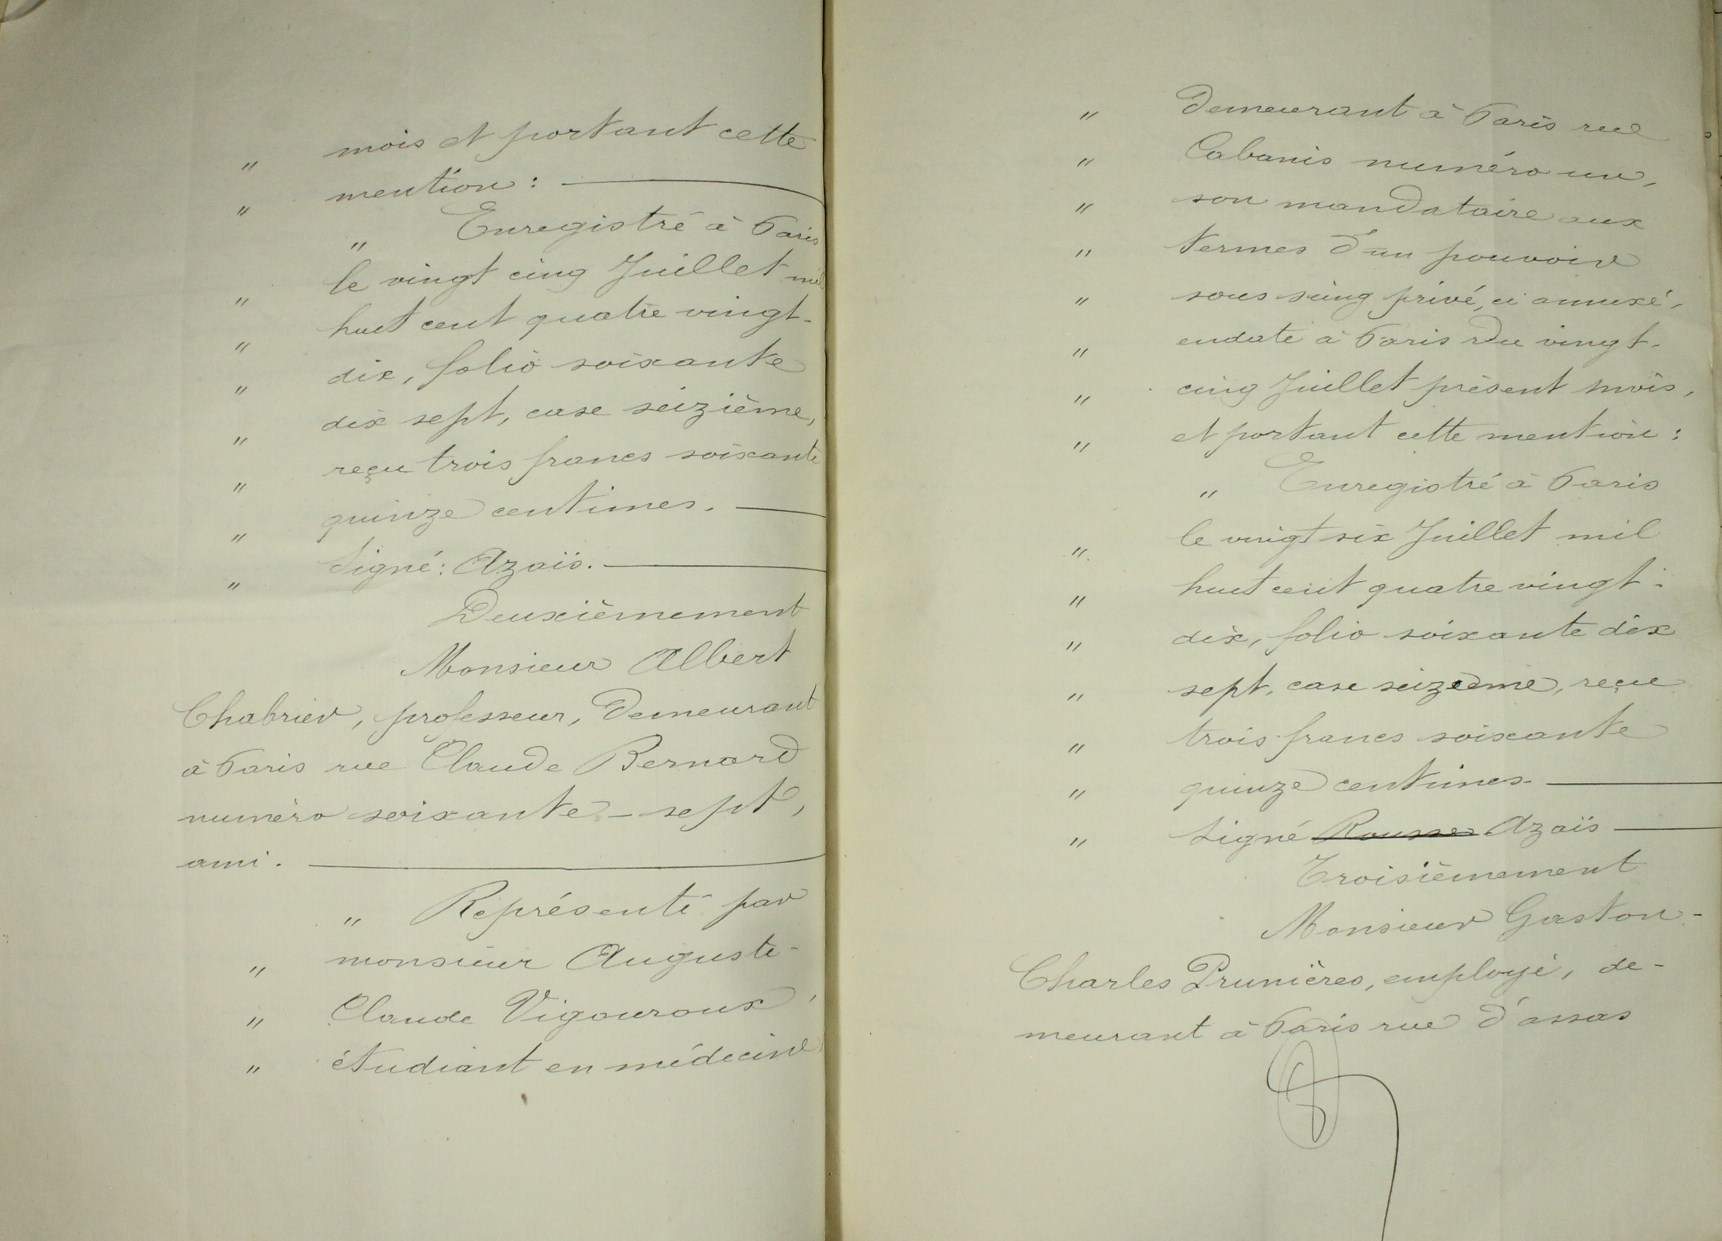 " mois et portant cette
" mention :
" Enregistré à Paris
" le vingt cinq Juillet mil
" huit cent quatre vingt-
" dix, folio soixante
" dix sept, case seizième,
" reçu trois francs soixante
" quinze centimes.
" Signé : Azaïs.
Deuxièmement
Monsieur Albert
Chabrier, professeur, demeurant
à Paris rue Claude Bernard
numéro soixante-sept,
ami.
" Représenté par
" monsieur Auguste-
" Claude Vigouroux,
" étudiant en médecine
" demeurant à Paris rue
" Cabanis numéro un,
" son mandataire aux
" termes d'un pouvoir
" sous seing privé, ci annexé,
" en date à Paris du vingt-
" cinq Juillet présent mois,
" et portant cette mention :
" Enregistré à Paris
" le vingt six Juillet mil
" huit cent quatre vingt-
" dix, folio soixante dix
" sept, case seizième, reçu
" trois francs soixante
" quinze centimes
" Signé Rousse Azaïs
Troisièmement
Monsieur Gaston-
Charles Prunières, employé, de-
meurant à Paris rue d'assas